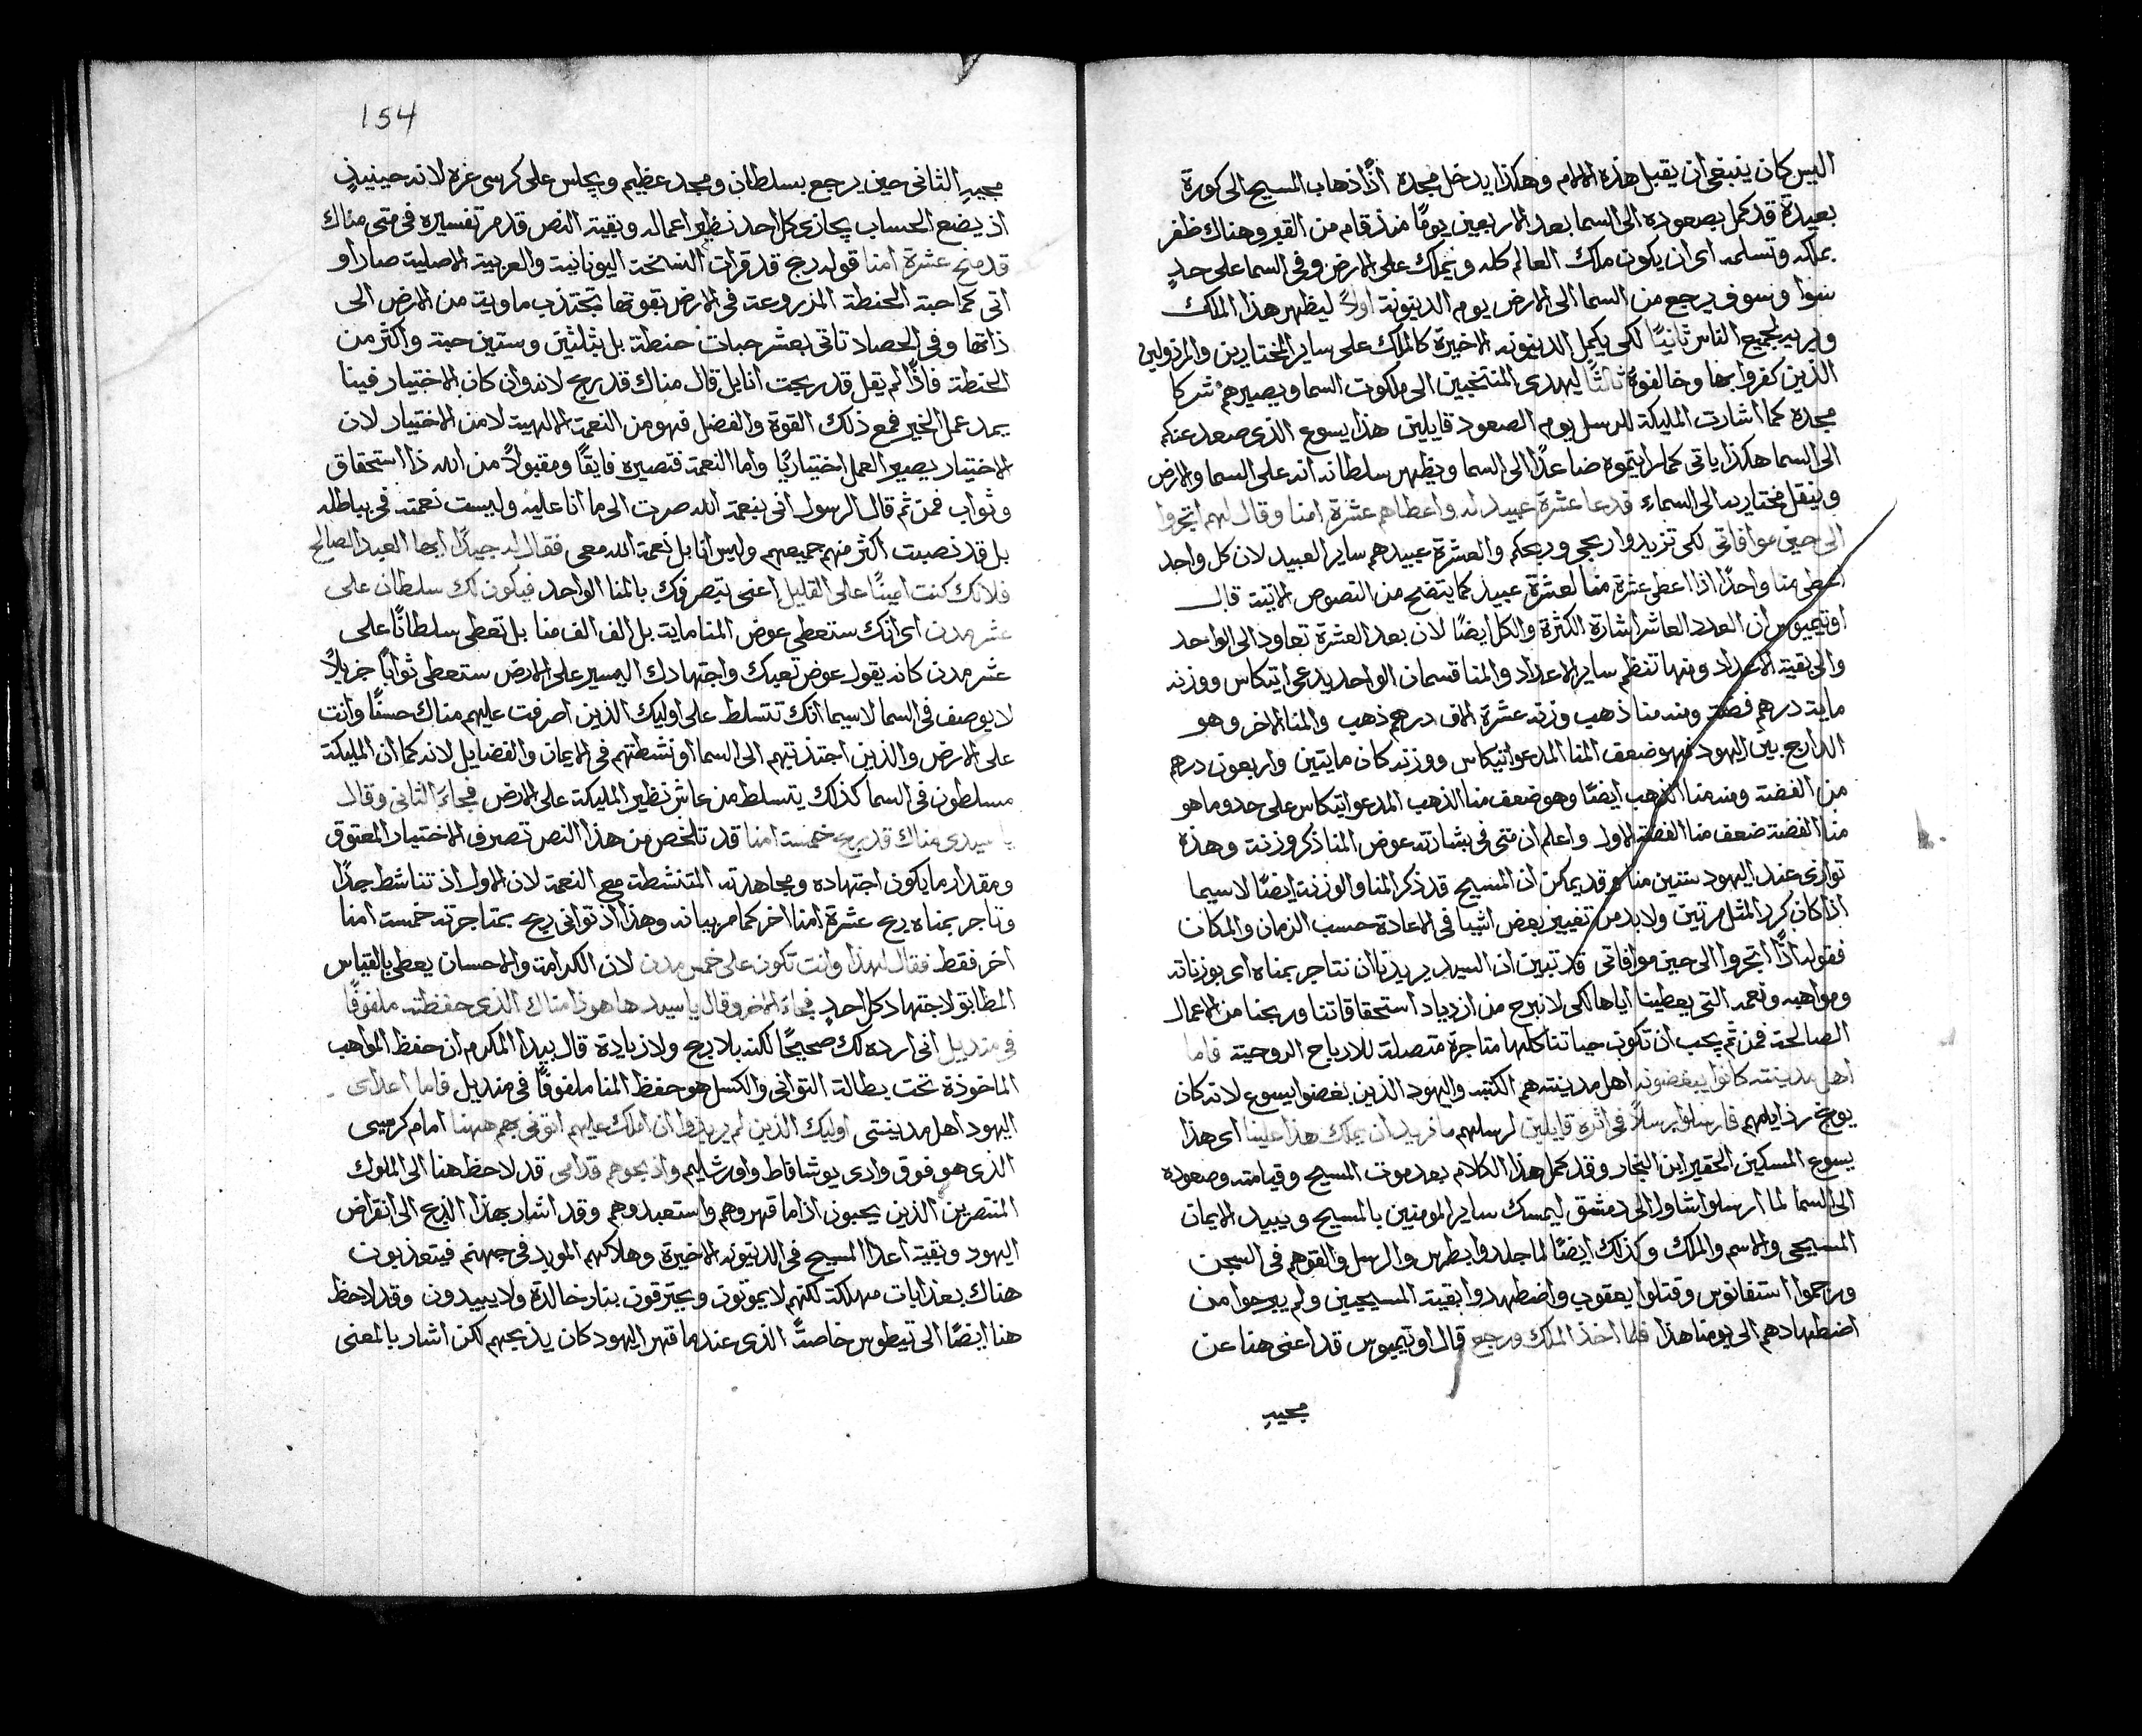 اليس كان ينبغي ان يقبل هذه الالام وهكذا يدخل مجده اذًا ذهاب المسيح الى كورة
بعيدة قد كمل بصعوده الى السما بعد الاربعين يومًا منذ قام من القبر وهناك ظفر
بملكه وتسلمه اى ان يكون ملك العالم كله ويملك على الارض وفى السما على حدٍ
سوا وسوف يرجع من السما الى الارض يوم الدينونة اولاً ليظهر هذا الملك
ويريه لجميع الناس ثانيًا لكى يكمل الدينونه الاخيرة كالملك على ساير المختارين والمرذولين
الذين كفروا بها وخالفوهُ ثالثًا ليهدى المنتخبين الى ملكوت السما ويصيرهم شركا
مجده كما اشارت المليكة للرسل يوم الصعود قايلين هذا يسوع الذى صعد عنكم
الى السما هكذا ياتى كما رايتموه صاعدًا الى السما ويظهر سلطانه انه على السما والارض
وينقل مختاريه الى السماء فدعا عشرة عبيد له واعطاهم عشرة امنا وقال لهم اتجروا
الى حين موافاتى لكى تزيدوا ربحى وربحكم والعشرة عبيد هم ساير العبيد لان كل واحد
اعطى منا واحدًا اذا اعطى عشرة منا لعشرة عبيد كما يتضح من النصوص الاتية قال
اوتيميوس ان العدد العاشر اشارة الكثرة والكل ايضًا لان بعد العشرة تعاود الى الواحد
والى بقية الاعداد ومنها تنظم ساير الاعداد والمنا قسمان الواحد يدعى اتيكاس ووزنه
ماية درهم فضة ومنه منا ذهب وزنه عشرة الاف درهم ذهب والمنا الاخر وهو
الدارج بين اليهود فهو ضعف المنا المدعو اتيكاس ووزنه كان مايتين واربعون درهم
من الفضة ومنه منا الذهب ايضًا وهو ضعف منا الذهب المدعو اتيكاس على حد وما هو
منا الفضة ضعف منا الفضة الاول واعلم ان متى فى بشارته عوض المنا ذكر وزنة وهذه
توازى عند اليهود ستين منا وقد يمكن ان المسيح قد ذكر المنا والوزنة ايضًا لاسيما
اذا كان كرر المثل مرتين ولا بد من تغيير بعض اشيا فى الاعادة حسب الزمان والمكان
فقوله اذًا اتجروا الى حين موافاتى قد تبين ان السيد يريدنا ان نتاجر بمناه اى بوزناته
ومواهبه ونعمه التى يعطينا اياها لكى لا نبرح من ازدياد استحقاقاتنا وربحنا من الاعمال
الصالحة فمن ثم يجب ان تكون حياتنا كلها متاجرة متصلة للارباح الروحية فاما
اهل مدينته كانوا يبغضونه اهل مدينته هم الكتبه واليهود الذين بغضوا يسوع لانه كان
يوبخ رذايلهم فارسلوا رسلاً فى اثره قايلين لرسلهم ما نريد ان يملك هذا علينا اى هذا
يسوع المسكين الحقير ابن النجار وقد كمل هذا الكلام بعد موت المسيح وقيامته وصعوده
الى السما لما ارسلوا شاول الى دمشق ليمسك ساير المومنين بالمسيح ويبيد الايمان
المسيحى والاسم والملك وكذلك ايضًا لما جلدوا بطرس والرسل والقوهم فى السجن
ورجموا استفانوس وقتلوا يعقوب واضطهدوا بقية المسيحيين ولم يبرحوا من
اضطهادهم الى يومنا هذا فلما اخذ الملك ورجع قال اوتيميوس قد اعنى هنا عن
مجيهِ
154
مجيهِ الثانى حين يرجع بسلطان ومجد عظيم ويجلس على كرسى عزه لانه حينيذٍ
اذ يضع الحساب يجازى كل احد نظير اعماله وبقية النص قد مر تفسيره فى متى مناك
قد ربح عشرة امنا قوله ربح قد قرات النسخة اليونانية والعربية الاصلية صار او
اتى كما حبة الحنطة المزروعة فى الارض بقوتها تجتذب ماوية من الارض الى
ذاتها وفى الحصاد تاتى بعشر حبات حنطة بل بثلثين وستين حبة واكثر من
الحنطة فاذًا لم يقل قد ربحت انا بل قال مناك قد ربح لانه وان كان الاختيار فينا
يمد عمل الخير فمع ذلك القوة والفضل فهو من النعمة الالهية لا من الاختيار لان
الاختيار يصير العمل اختياريًا واما النعمة فتصيره فايقًا ومقبولاً من الله ذا استحقاق
وثواب فمن ثم قال الرسول انى بنعمة الله صرت الى ما انا عليه وليست نعمته فى بباطله
بل قد نصبت اكثر منهم جميعهم وليس انا بل نعمة الله معى فقال له جيدًا ايها العبد الصالح
فلانك كنت امينًا على القليل اعنى بتصرفك بالمنا الواحد فيكون لك سلطان على
عشر مدن اى انك ستعطى عوض المنا ماية بل الف الف منا بل تعطى سلطانًا على
عشر مدن كانه يقول عوض تعبك واجتهادك اليسير على الارض ستعطى ثوابًا جزيلاً
لا يوصف فى السما لاسيما انك تتسلط على اوليك الذين اصرفت عليهم مناك حسنًا وانت
على الارض والذين اجتذبتهم الى السما او نشطتهم فى الايمان والفضايل لانه كما ان المليكة
مسلطون فى السما كذلك يتسلط من عاش نظير المليكة على الارض فجاء الثانى وقال
يا سيدى مناك قد ربح خمسة امنا قد تلخص من هذا النص تصرف الاختيار المعتوق
ومقدار ما يكون اجتهاده ومجاهدته المتنشطة مع النعمة لان الاول اذ تناشط جدًا
وتاجر بمناه ربح عشرة امنا اخر كما مر بيانه وهذا اذ توانى ربح بمتاجرته خمسة امنا
اخر فقط فقال لهذا وانت تكون على خمس مدن لان الكرامة والاحسان يعطى بالقياس
المطابق لاجتهاد كل احدٍ فجاء الاخر وقال يا سيد ها هوذا مناك الذى حفظته ملفوفًا
فى منديل انى ارده لك صحيحًا لكنه بلا ربح ولا زيادة قال بيدا المكرم ان حفظ المواهب
الماخوذة تحت بطالة التوانى والكسل هو حفظ المنا ملفوفًا فى منديل فاما اعداى
اليهود اهل مدينتى اوليك الذين لم يريدوا ان املك عليهم اتونى بهم ههنا امام كرسيى
الذى هو فوق وادى يوشافاط واورشليم واذبحوهم قدامى قد لاحظ هنا الى الملوك
المنتصرين الذين يحبون اذا ما قهروهم واستعبدوهم وقد اشار بهذا الذبح الى انقراض
اليهود وبقية اعدا المسيح فى الدينونه الاخيرة وهلاكهم الموبد فى جهنم فيتعذبون
هناك بعذابات مهلكة لكنهم لا يموتون ويحترقون بنار خالدة ولا يبيدون وقد لاحظ
هنا ايضًا الى تيطوس خاصتًا الذى عندما قهر اليهود كان يذبحهم لكن اشار بالمعنى